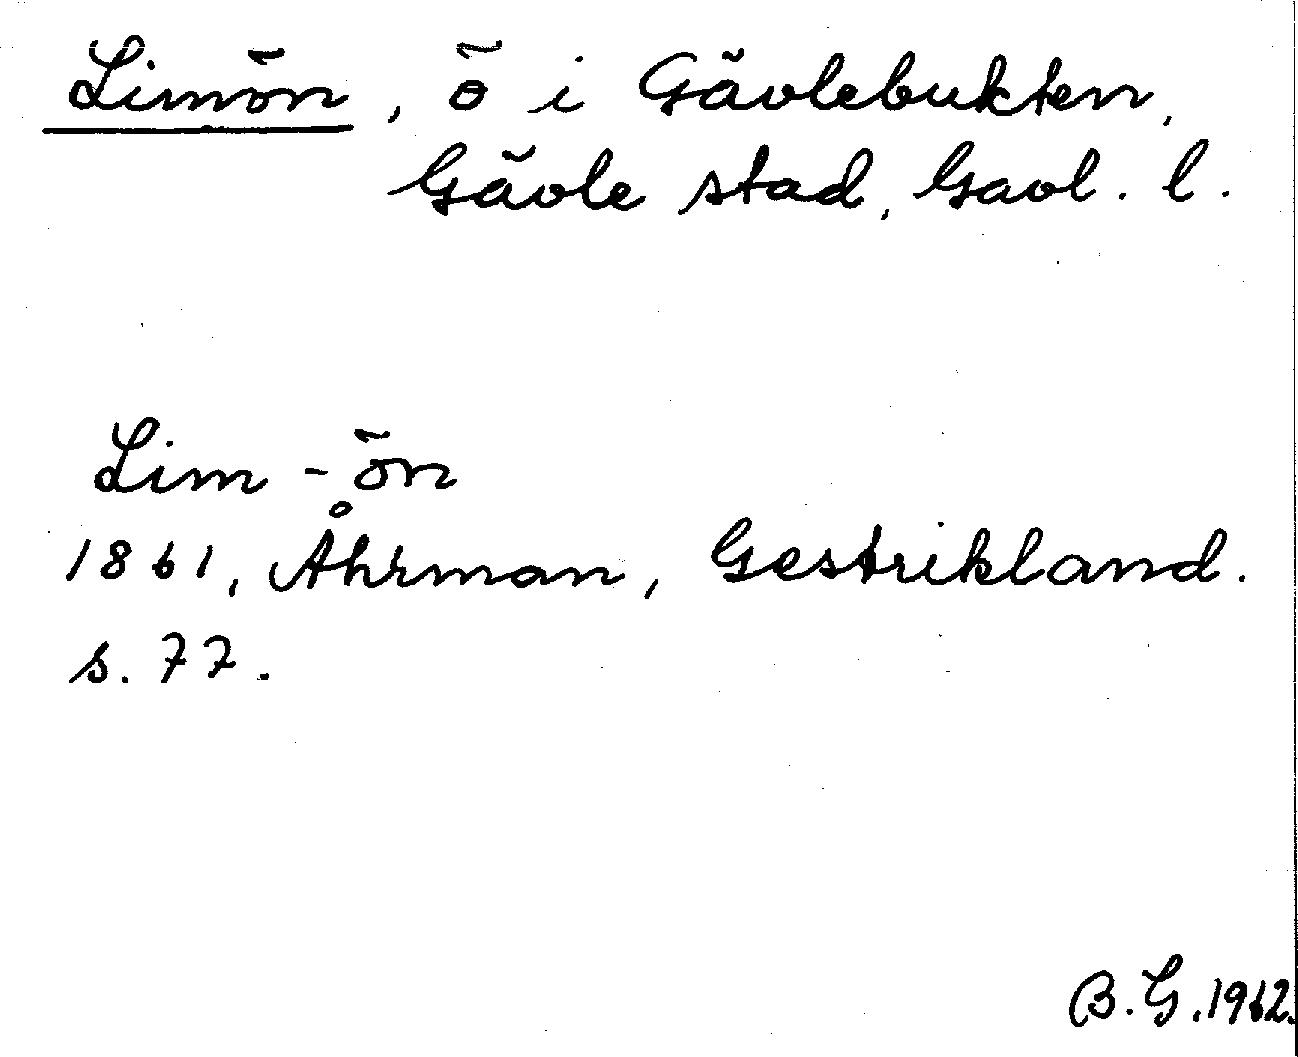 Limön, ö i Gävlebukten,
Gävle stad, Gavl. l.
Lim-ön
1861, Åhrman, Gestrikland.
s. 77.
B. G. 1962.